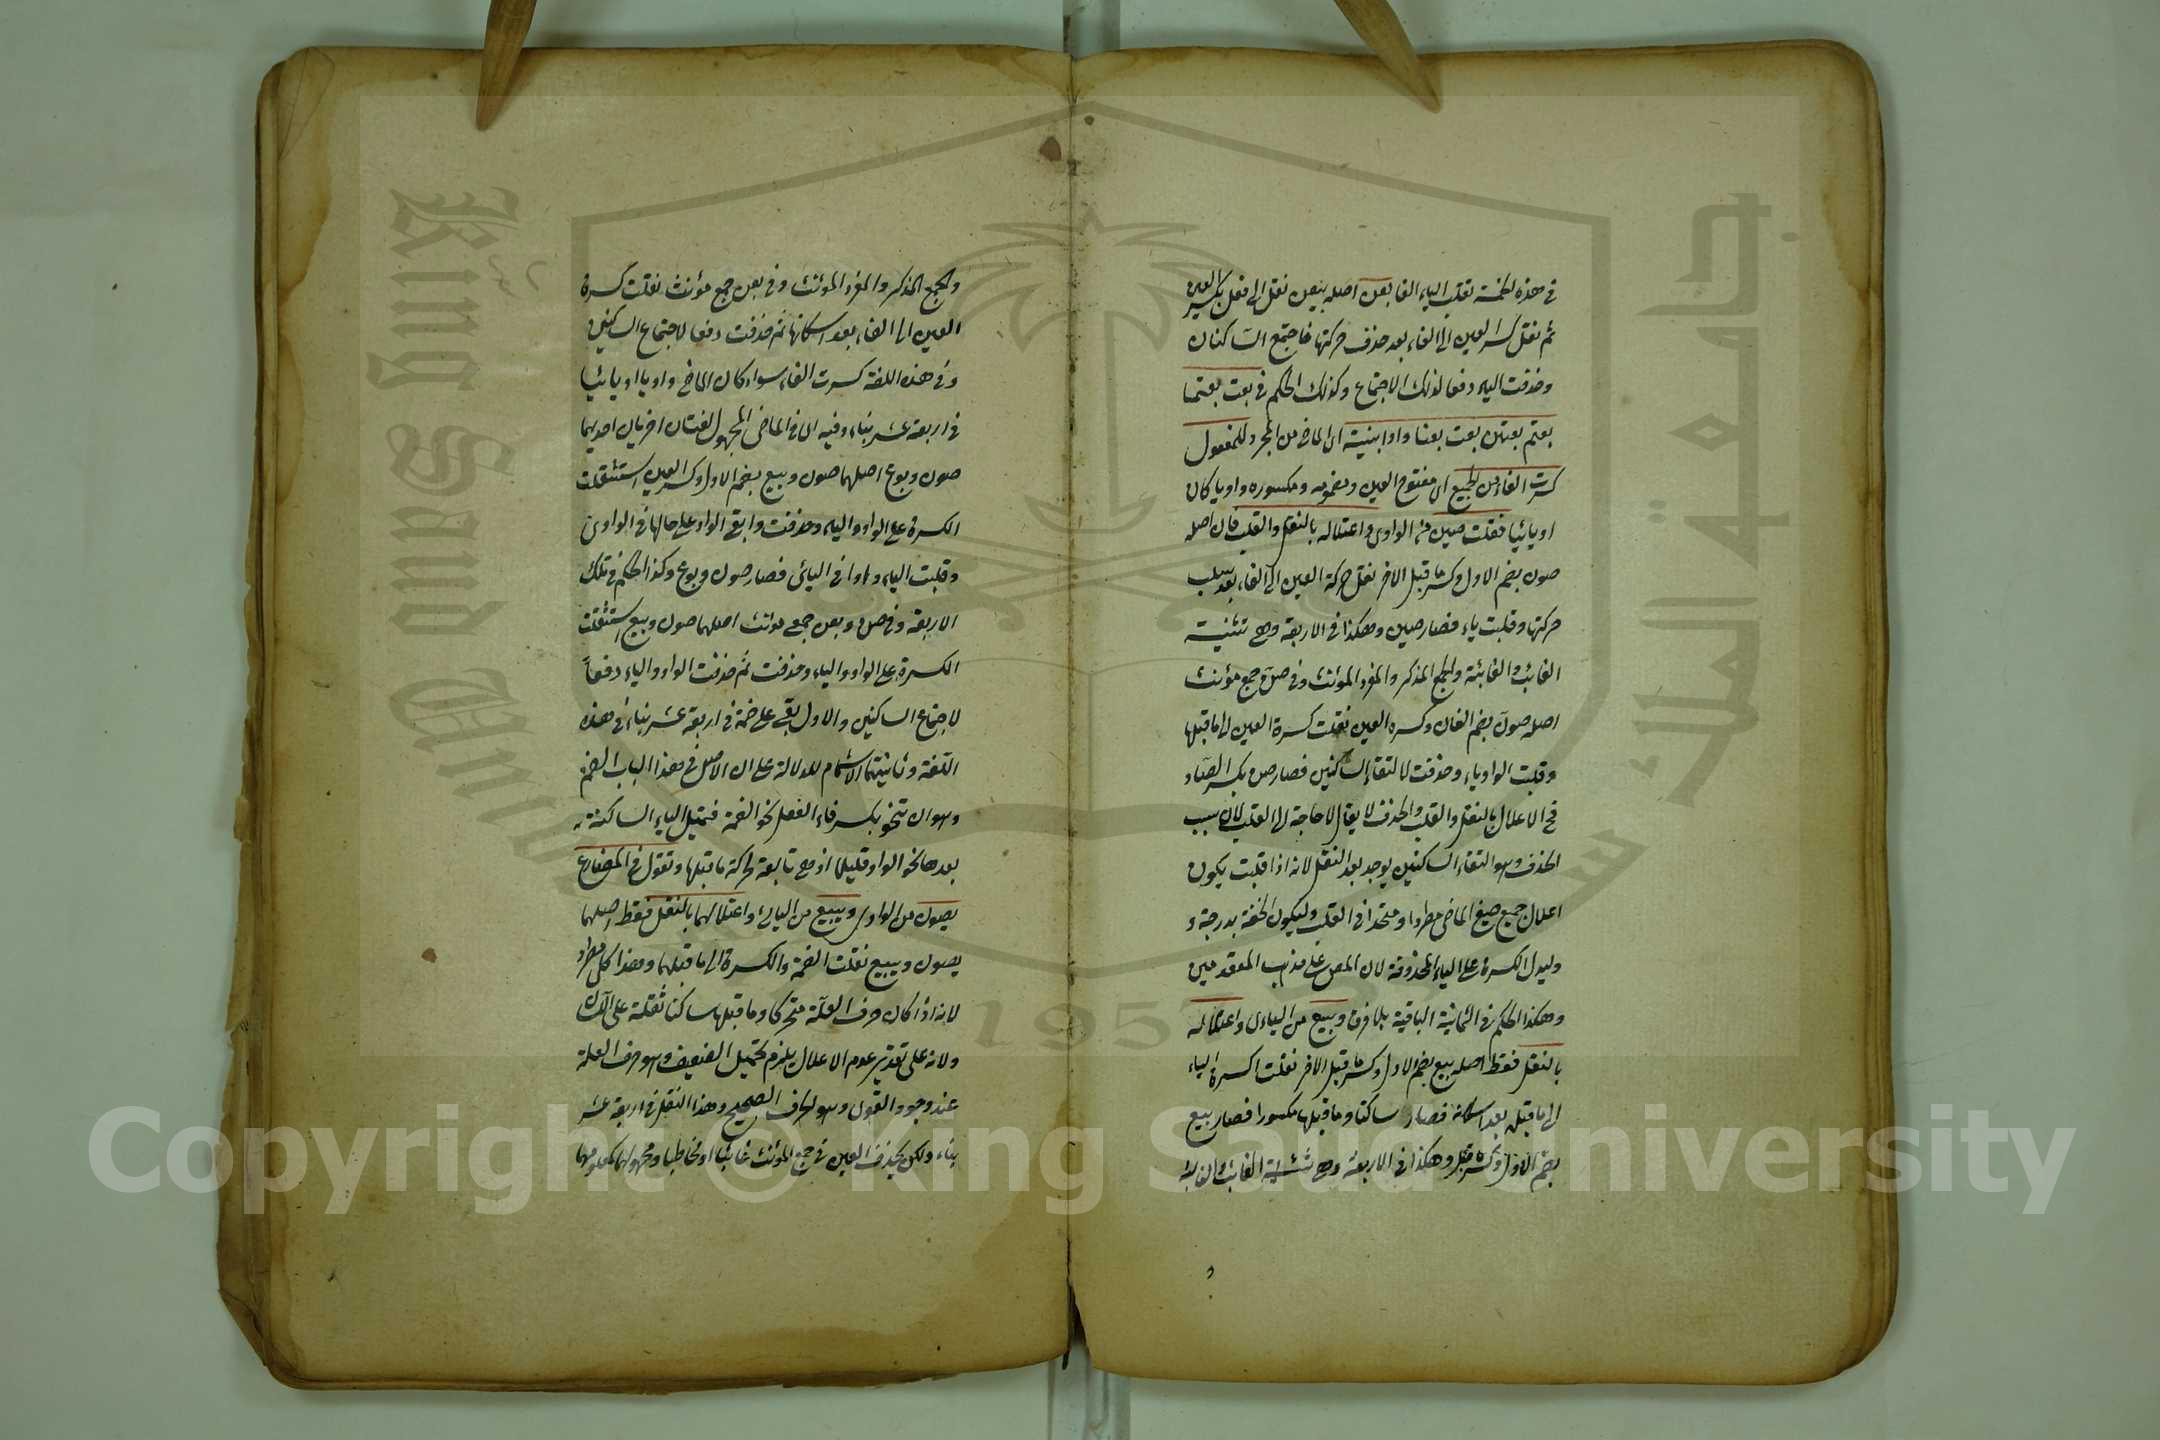 في هذه لخفة تقلب الياء الفا بعن اصله بيعن نقل الى فعل بكسر العين
ثم نقل كسر العين الى الفاء بعد حذف حركتها فاجتمع الساكنان
وحذفت الياء دفعا لذلك الاجتماع وكذلك الحكم في بعت بعتما
بعتم بعتن بعت بعنا واذا بنيته اى الماضى من المجرد للمفعول
كسرت الفاء من الجميع اى مفتوح العين ومضمومه ومكسوره واويا كان
او يائيا فقلت صين من الواوى واعتلاله بالنقل والقلب فان اصله
صون بضم الاول وكسر ما قبل الاخر نقل حركة العين الى الفاء بعد سلب
حركتها وقلبت ياء فصار صين وهكذا في الاربعة وهى تثنية
الغائب والغائبة والجمع المذكر والمفرد المؤنث وفي صن جمع مؤنث
اصله صون بضم الفاء وكسره العين نقلت كسرة العين الى ما قبلها
وقلبت الواو ياء وحذفت لالتقاء الساكنين فصار صن بكسر الصاد
فح الاعلال بالنقل والقلب والحذف لا يقال لا حاجة الى القلب لان سبب
الحذف وهو التقاء الساكنين يوجد بعد النقل لانه اذا قلبت يكون
اعلال جميع صيغ الماضى مطردا ومتحدا في القلب وليكون الخفة بدرجة و
وليدل الكسرة على الياء المحذوفة لان المص على مذهب المعقدمين
وهكذا الحكم في الثمانية الباقية بلا فرق وبيع من اليائى واعتلاله
بالنقل فقط اصله بيع بضم الاول وكسر ما قبل الاخر نقلت كسرة الياء
الى ما قبل بعد اسكانه فصار ساكنا وما قبلها مكسورا فصار بيع
وهكذا في الاربعة وهى تثنية الغائب والغائبة
والجمع المذكر والمفرد المؤنث وفي بعن جمع مؤنث نقلت كسرة
العين الى الفاء بعد اسكانها ثم حذفت دفعا لاجتماع الساكنين
وفي هذه اللغة كسرت الفاء سواء كان الماضى واويا او يائيا
في اربعة عشر بناء وفيه اى في الماضى المجهول لغتان اخريان احديهما
صون وبوع اصلهما صون وبيع بضم الاول وكسر العين استثقلت
الكسرة على الواو والياء وحذفت وابقى الواو على حالها في الواوى
وقلبت الياء واوا في اليائى فصار صون وبوع وكذا الحكم في تلك
الاربعة وفي صن وبعن جمعى مؤنث اصلهما صون وبيع استثقلت
الكسرة على الواو والياء وحذفت ثم حذفت الواو والياء دفعاً
لاجتماع الساكنين والاول بقى على ضمة في اربعة عشر بناء في هذه
اللغة وثانيتهما الاشمام للدلالة على ان الاصل في هذا الباب الضم
وهو ان تنحو بكسر فاء الفعل نحو الضمة فتميل الياء الساكنة
بعدها نحو الواو قليلا اذ هى تابعة لحركة ما قبلها وتقول في المضارع
يصون من الواوى ويبيع من اليائى واعتلالهما بالنقل فقط اصلهما
يصون ويبيع نقلت الضمة والكسرة الى ما قبلهما وهذا كل مطرد
لانه اذا كان حرف العلة متحركا وما قبلها ساكنا ثقلة على اللسان
ولانه على تقدير عدم الاعلال يلزم تحميل الضعيف وهو حرف العلة
عند وجود القوى وهو الحرف الصحيح وهذا النقل في اربعة عشر
بناء ولكن يحذف العين في جمع المؤنث غائبا او مخاطبا ومجهولهما كمعلومهما